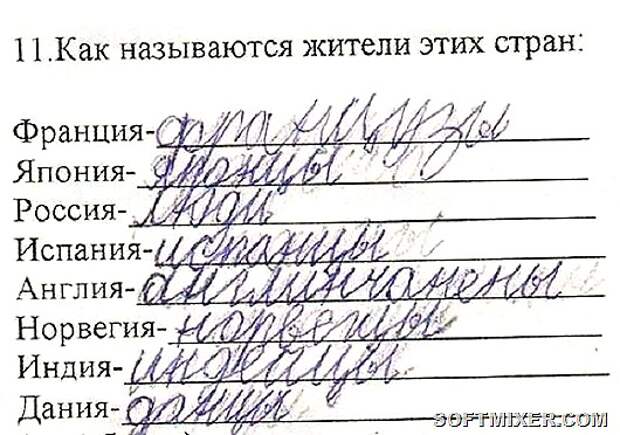 11.Как называются жители этих стран:
Франция-французы
Япония-японцы
Россия-люди
Испания-испанцы
Англия-англинчанены
Норвегия-норвегцы
Индия-индейцы
Дания-данцы
SOFTMIXER.COM